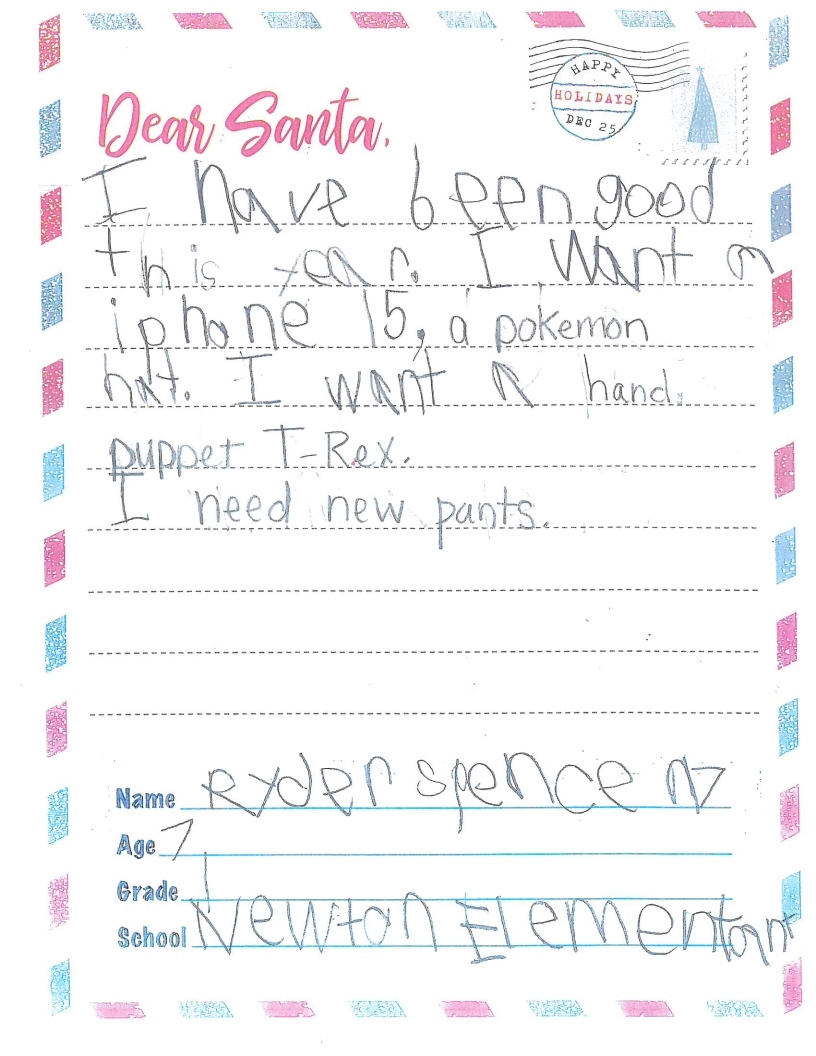 HAPPY
HOLIDAYS
DEC 25
Dear Santa,
I have been good
this year. I want a
iphone 15, a pokemon
hat. I want a hand.
puppet T-Rex.
I need new pants.
Name Ryder spence
Age 7
Grade 1
School Newton Elementary